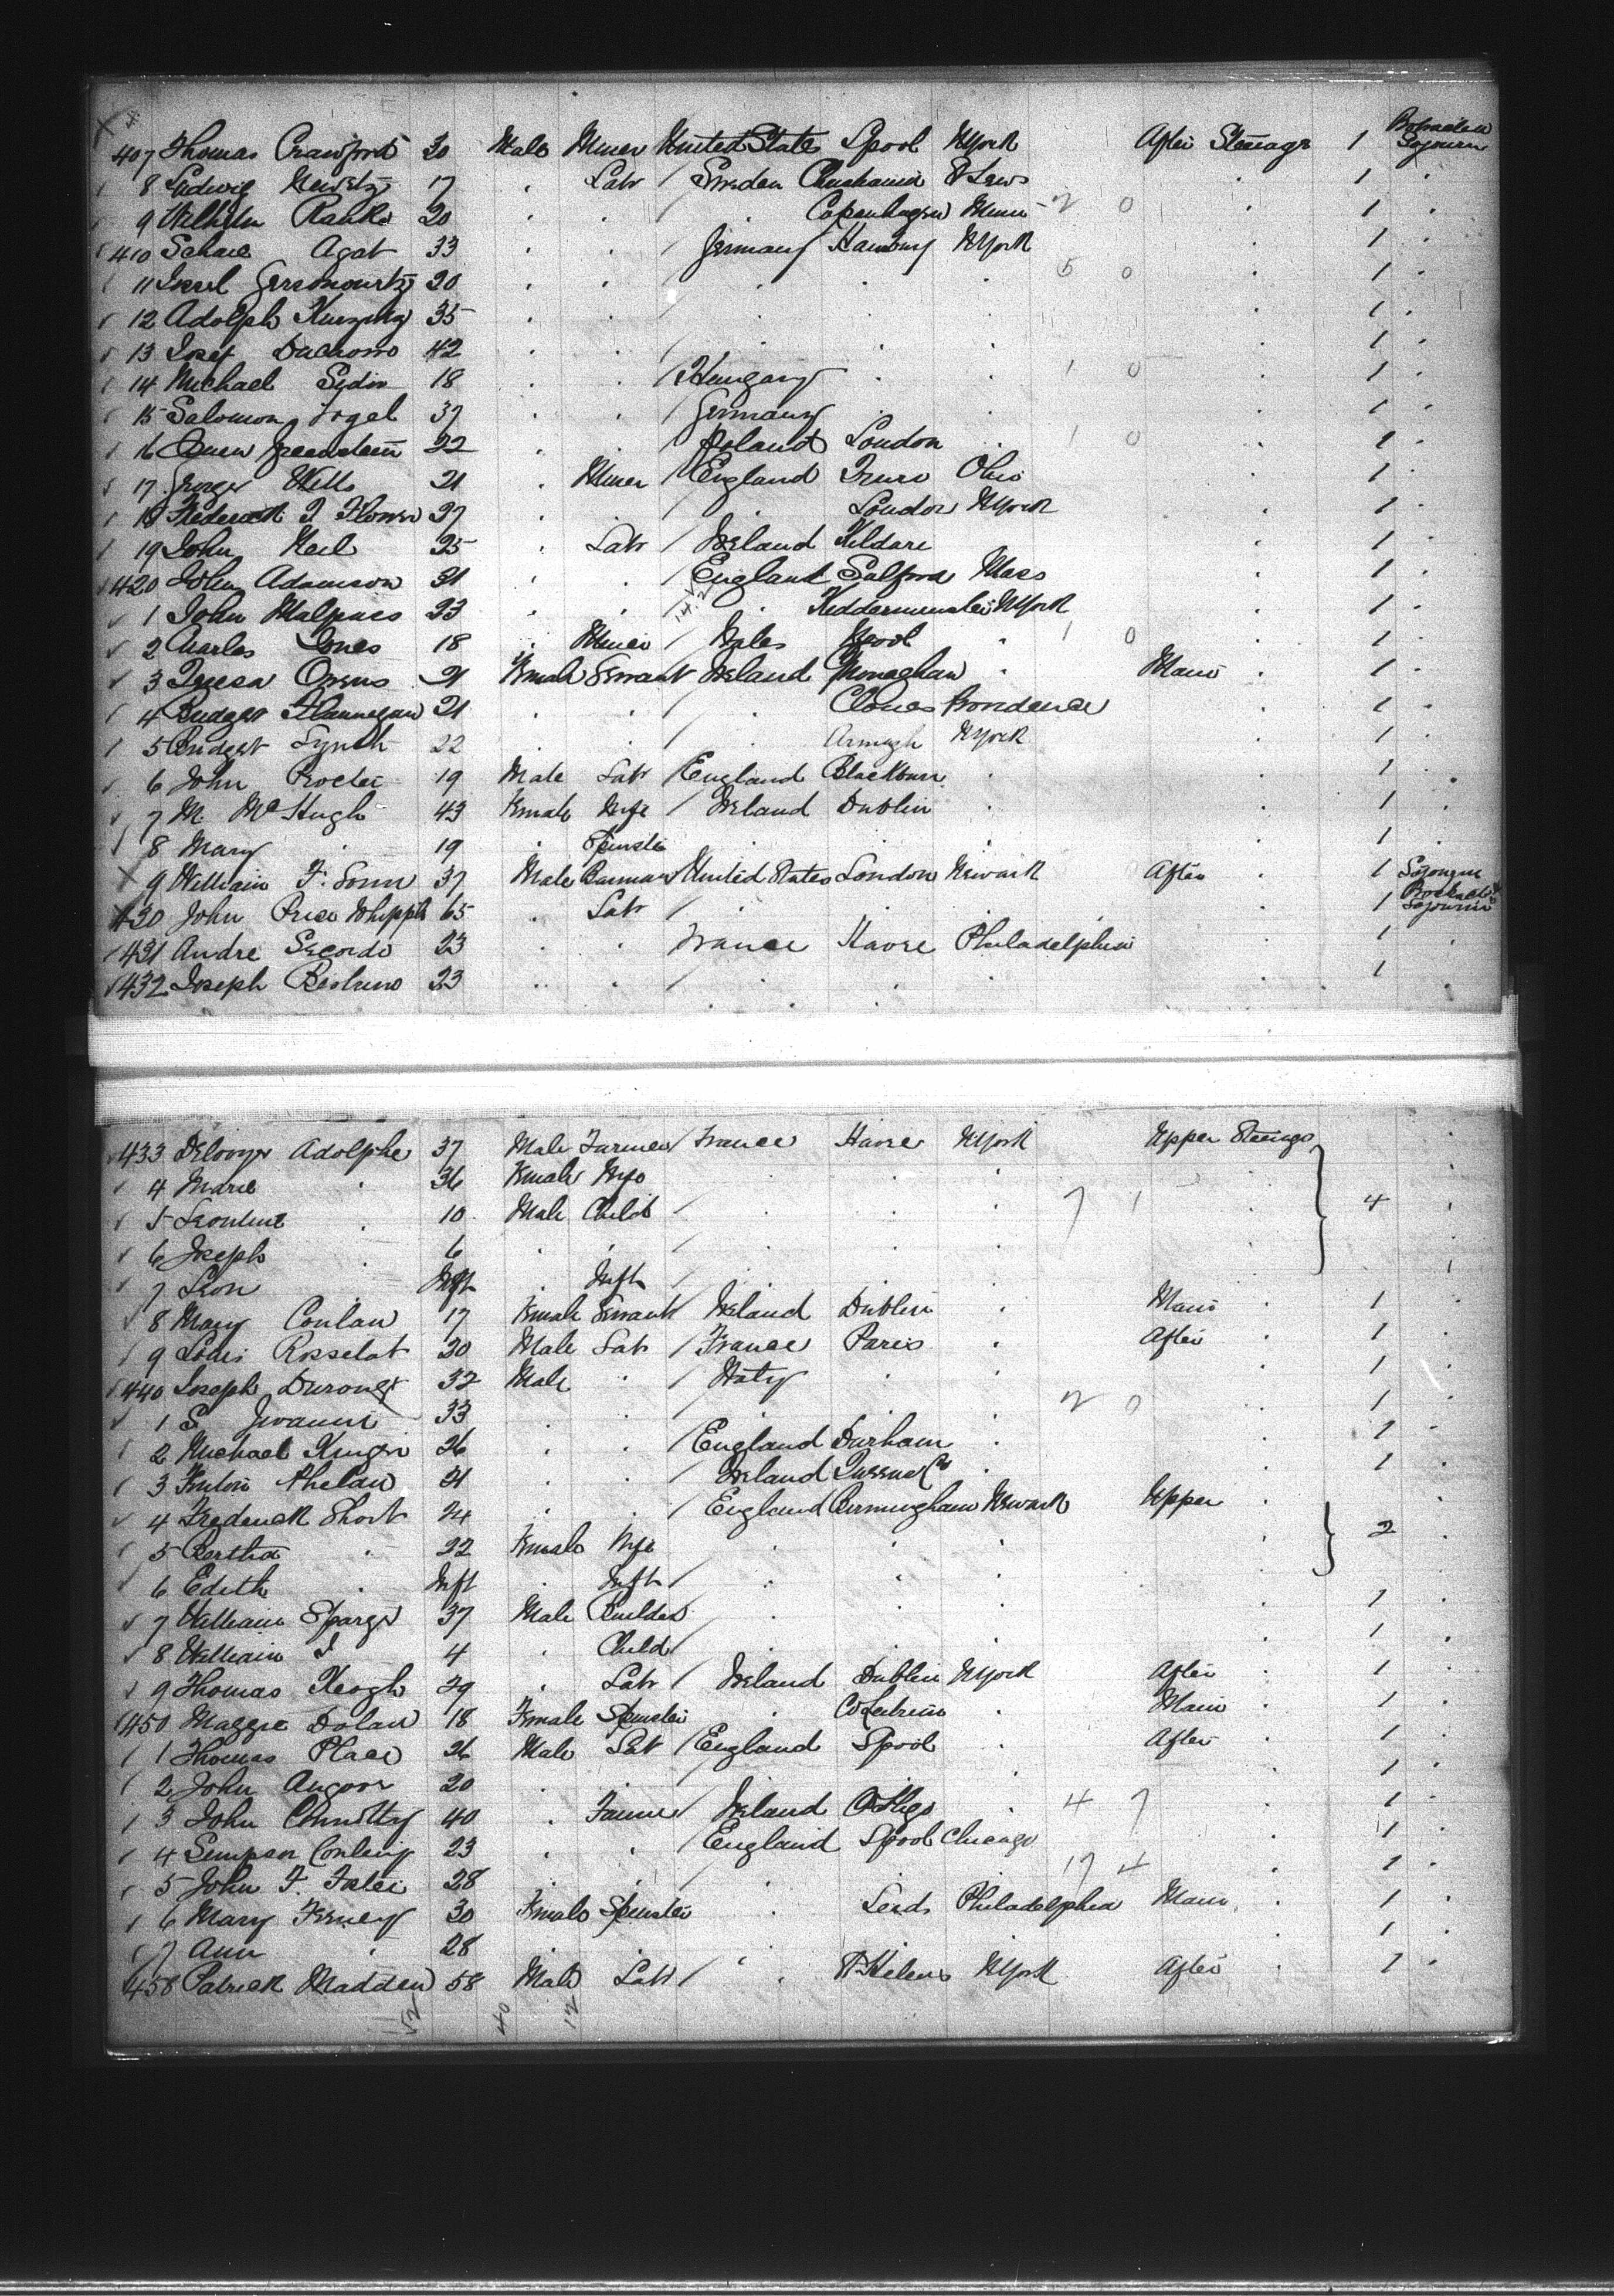 407 Thomas Crawford 30 Male Miner United States Lpool NYork After Steerage 1 Sojourn
8 Ludwig 17 . Labr / Sweden St Lews . 1 .
9 Wilhelm Ranke 20 . . . Copenhagen Minn 2 0 . 1 .
410 Agat 33 . . / Germany Hamburg NYork . 1 .
11 20 . . / . . . 5 0 . 1 .
12 Adolph 35 . . . . . 1 .
13 Josef 42 . . . . . 1 .
14 Michael 18 . . / Hungary . . 1 0 . 1 .
15 Salomon 37 . . / Germany . . 1 .
16 22 . . / Poland London . 1 0 . 1 .
17 George Wills 21 . Miner / England Truro Ohio . 1 .
18 Frederick 27 . . . London NYork . 1 .
19 John 25 . Labr / Ireland Kildare . 1 .
420 John Adamson 31 . . England Salford Mass . 1 .
1 John Malpass 23 . . / . Kidderminster NYork . 1 .
2 Charles Jones 18 . Miner / Wales Lpool . 1 0 . 1 .
3 Teresa Owens 21 Female Servant Ireland Monaghan . Main . 1 .
4 Bridget Flannegan 21 . . / . Clones Providence . 1 .
5 Bridget Lynch 22 . . / . Armagh NYork . 1 .
6 John Procter 19 Male Labr / England Blackburn . . 1 .
7 M. McHugh 43 Female Wife / Ireland Dublin . . 1 .
8 Mary . 19 . Spinster . . . . 1 .
9 William F. 37 Male United States London Newark After . 1 Sojourn
430 John Price Whipple 65 . Labr / . . . . 1 Sojourn
431 Andre Secordo 23 . . France Havre Philadelphia . 1 .
432 Joseph 23 . . / . . . . 1 .
433 Adolphe 37 Male Farmer / France Havre NYork Upper Steerage .
4 Marie . 36 Female Wife . . . . .
5 Leontine . 10 Male Child / . . . 7 1 . 4 .
6 Joseph . 6 . . / . . . . .
7 Leon . Inft . Inft / . . . .
8 Mary Conlan 17 Female Servant / Ireland Dublin . Main . 1 .
9 Louis Rosselat 20 Male Labr / France Paris . After . 1 .
440 Joseph 32 Male . / Italy . . . 1 .
1 S 33 . . / . . . 2 0 . 1 .
2 Michael 26 . . / England Durham . . 1 .
3 Phelan 21 . . / Ireland Queens Co . . 1 .
4 Frederick Short 24 . . / England Birmingham Newark Upper . .
5 Bertha . 22 Female Wife . . . . 2 .
6 Edith . Inft . Inft / . . . . .
7 William Spargo 37 Male Builder . . . . 1 .
8 William J 4 . Child / . . . . 1 .
9 Thomas Keogh 29 . Labr / Ireland Dublin NYork After . 1 .
450 Maggie Dolan 18 Female Spinster . Co Leitrim . Main . 1 .
1 Thomas Place 26 Male Labr / England Lpool . After . 1 .
2 John 20 . . / . . . . 1 .
3 John 40 . Farmer / Ireland Co Sligo . 4 7 . 1 .
4 Simpson 23 . . / England Lpool Chicago . 1 .
5 John F. 28 . . / . . . 17 4 . 1 .
6 Mary 30 Female Spinster . Leeds Philadelphia Main . 1 .
7 Ann . 28 . . . . . . 1 .
458 Patrick Madden 58 Male Labr / . St Helens NYork After . 1 .
52 40 12